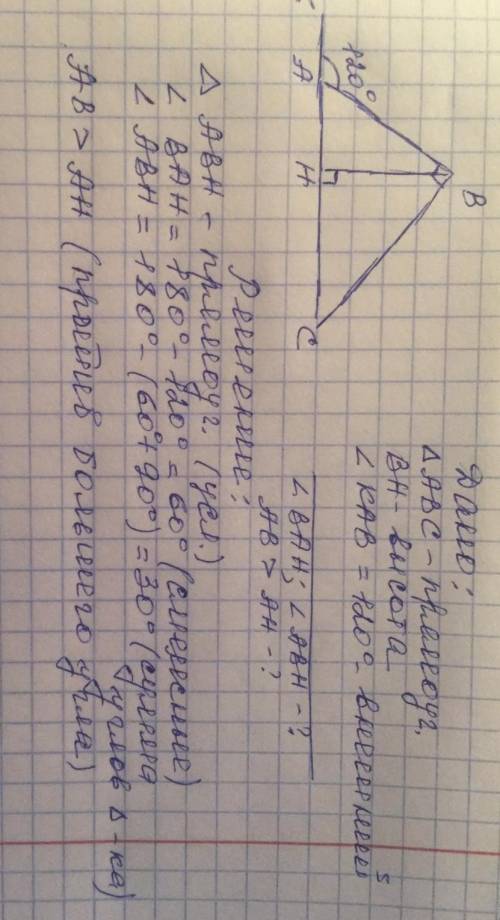 120°
A
H
C
B
Дано:
△ ABC - прямоуг.
BH - высота
∠ KAB = 120° - внешний
∠ BAH; ∠ ABH - ?
AB > AH - ?
Решение:
△ ABH - прямоуг. (усл.)
∠ BAH = 180° - 120° = 60° (смежные)
∠ ABH = 180° - (60° + 90°) = 30° (сумма
углов △-ка)
AB > AH (против большего угла)